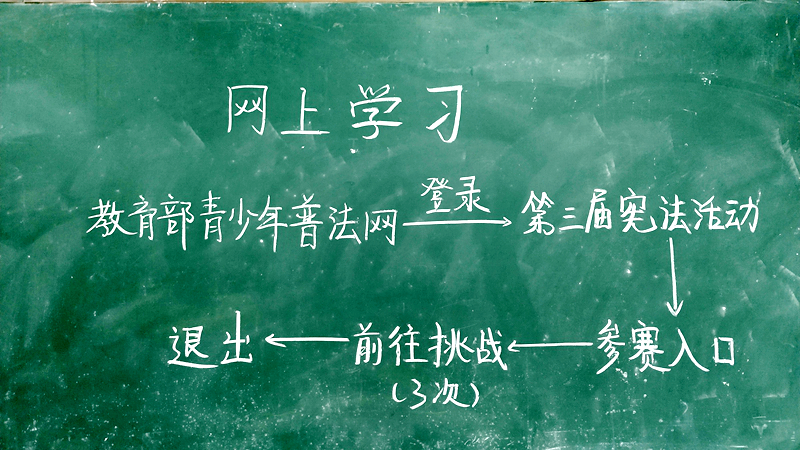 网上学习
教育部青少年普法网 登录 第三届宪法活动
退出 前往挑战 参赛入口
(3次)